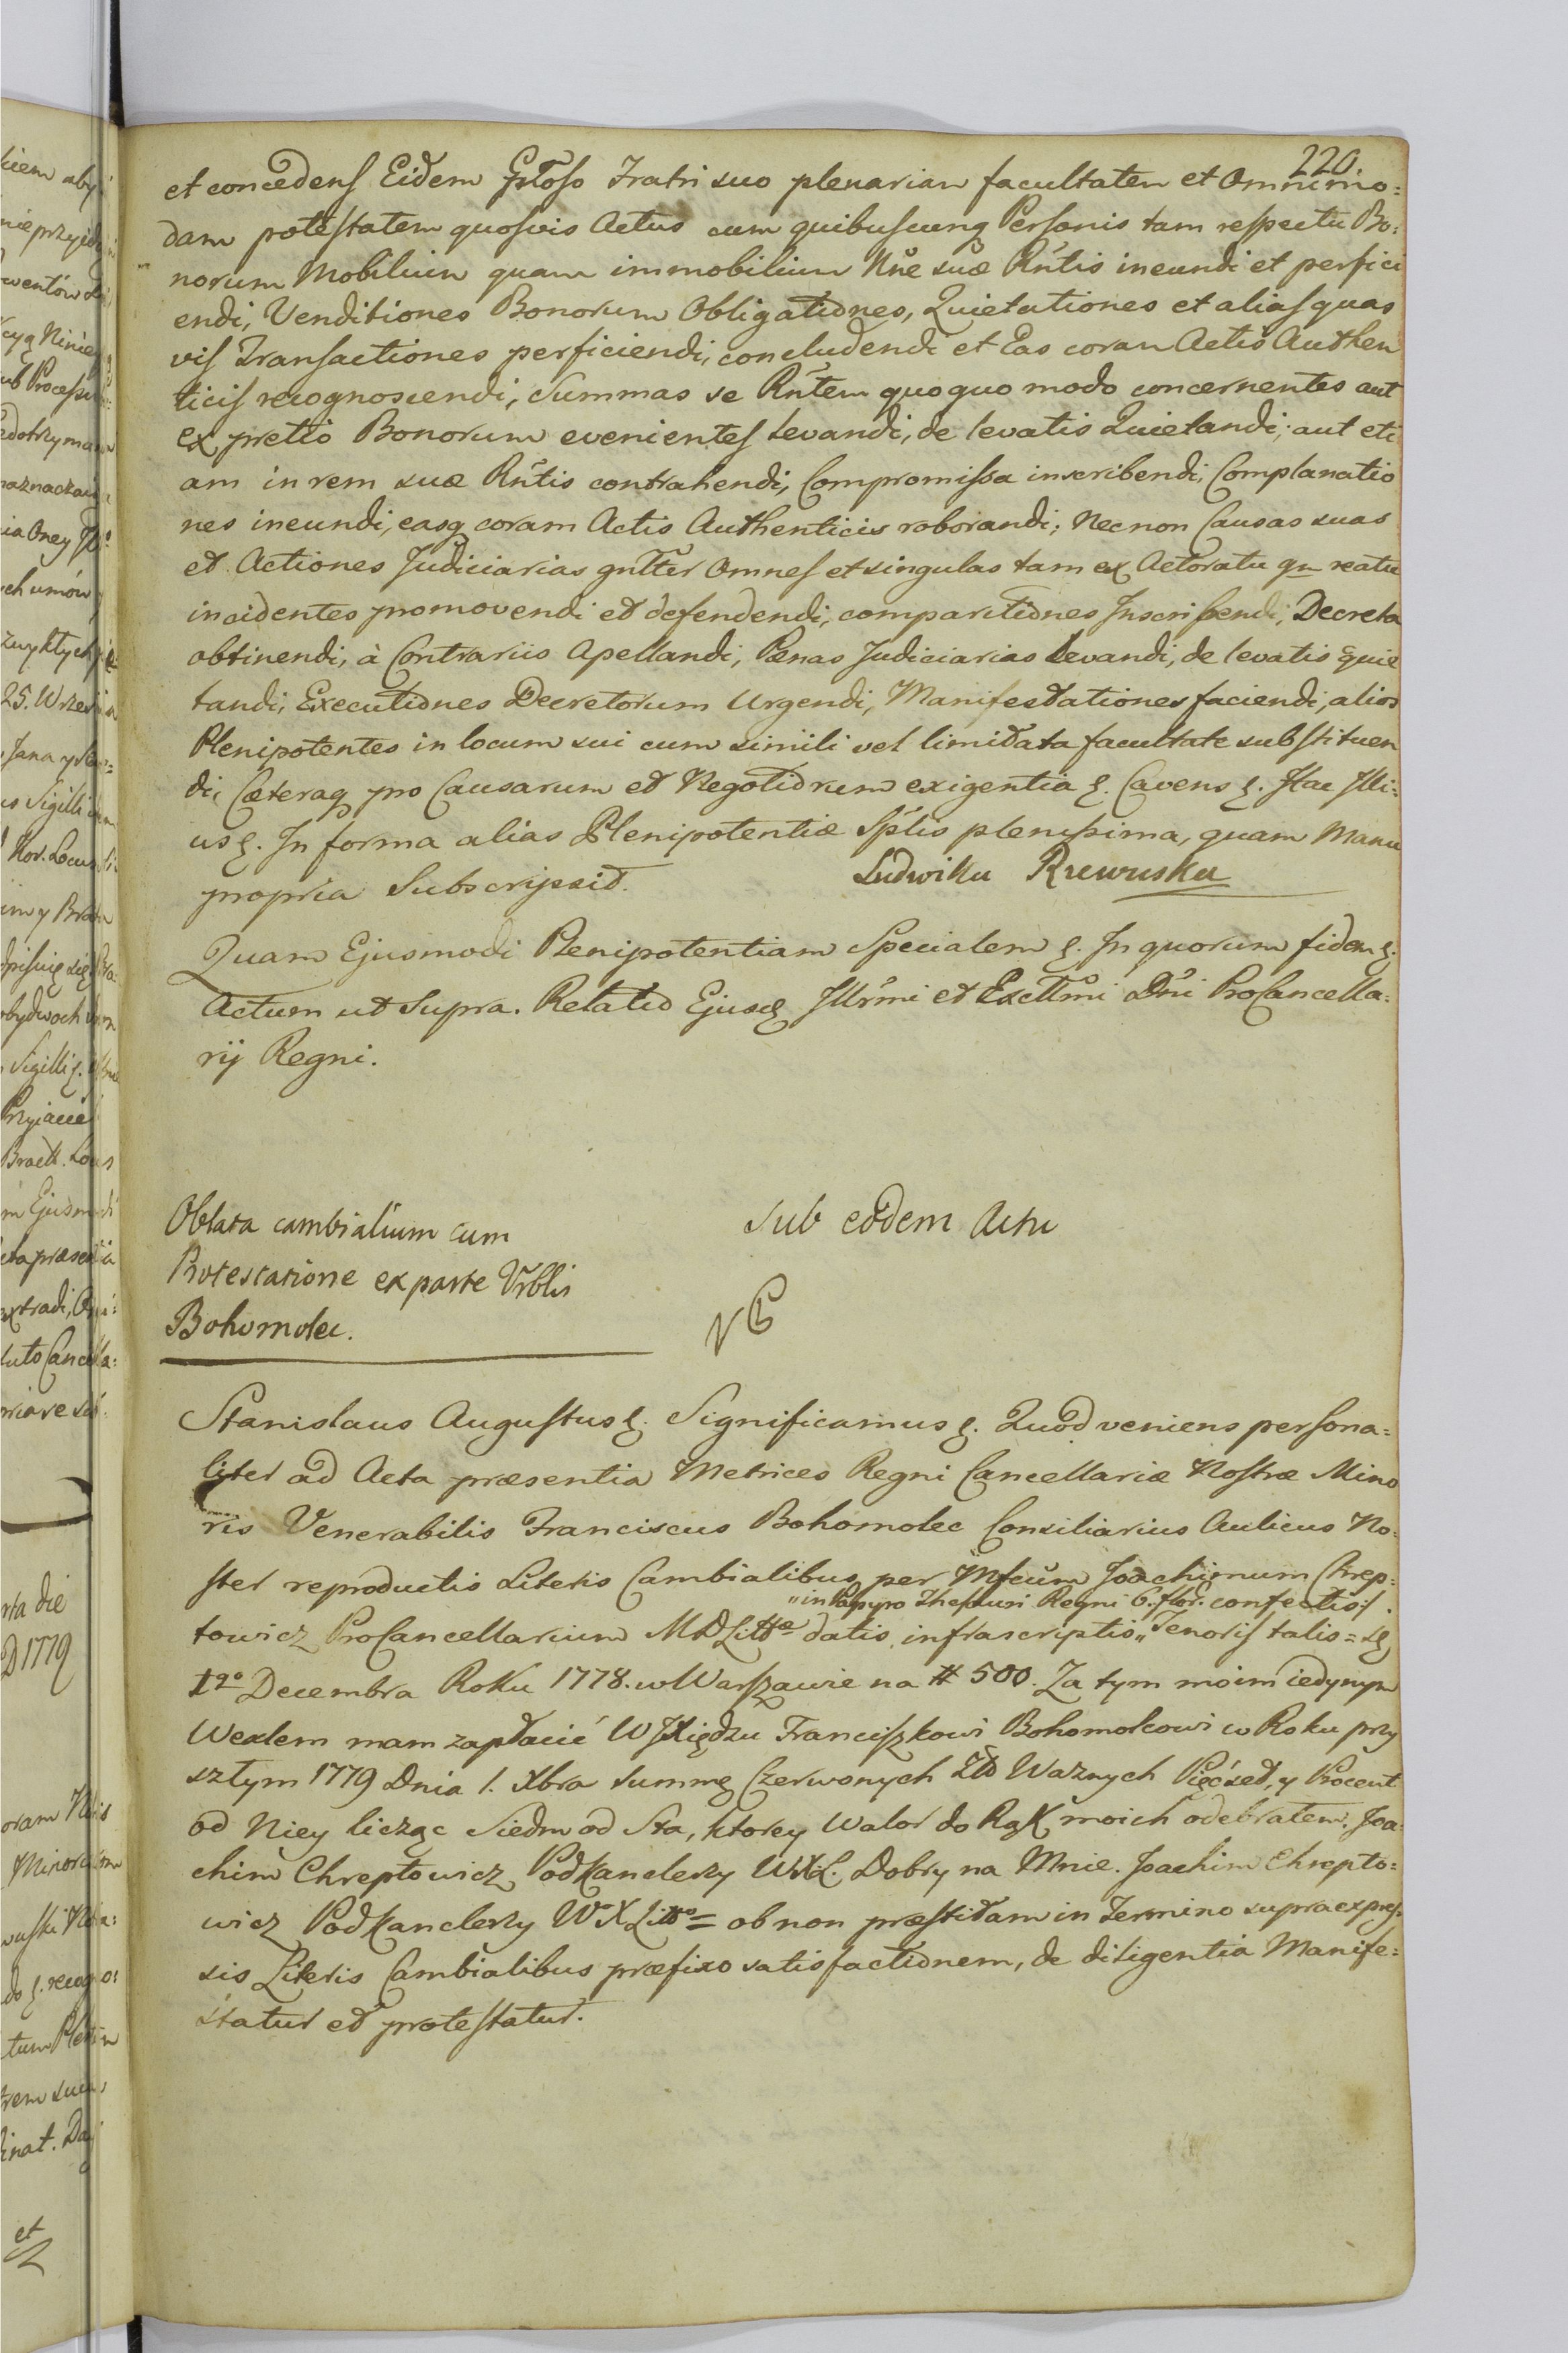 220.
et concedens Eidem Gnoso Fratri suo plenariam facultatem et Omnimo=
dam potestatem quosvis Actus cum quibuscunq Personis tam respectu Bo=
norum Mobilium quam immobilium Nne suæ Rntis ineundi et perfici
endi, Venditiones Bonorum Obligationes, Quietationes et alias quas
vis Transactiones perficiendi, concludendi et Eas coram Actis Authen
ticis recognoscendi, Summas se Rntem quoquo modo concernentes aut
ex pretio Bonorum evenientes levandi, de levatis Quietandi; aut eti
am in rem suæ Rntis contrahendi, Compromissa inscribendi, Complanatio
nes ineundi, easq coram Actis Authenticis roborandi; Necnon Causas suas
et Actiones Judiciarias gnlter Omnes et singulas tam ex Actoratu qm reatu
incidentes promovendi et defendendi, comparitiones Inscribendi, Decreta
obtinendi, à Contrariis Apellandi, Pænas Judiciarias Levandi, de levatis quie
tandi, Executiones Decretorum Urgendi, Manifestationes faciendi, alios
Plenipotentes in locum sui cum simili vel limitata facultate substituen
di, Cæteraq pro Causarum et Negotiorum exigentia &. Cavens &. Hac Illi=
us &. In forma alias Plenipotentiæ Splis plenissima, quam Manu
propria Subscripsit. Ludwika Rzewuska
Quam Ejusmodi Plenipotentiam Specialem &. In quorum fidem &.
Actum ut Supra. Relatio Ejusd Illrmi et Excllmi Dni ProCancella=
rij Regni.
Oblata cambialium cum
Protestatione ex parte Vrblis
Bohomolec.
Sub eodem Actu
Stanislaus Augustus &. Significamus &. Quod veniens persona=
liter ad Acta præsentia Metrices Regni Cancellariæ Nostræ Mino
ris Venerabilis Franciscus Bohomolec Consiliarius Aulicus No=
ster reproductis Literis Cambialibus per Mfcum Joachimum Chrep=
"in Papyro Thesauri Regni 6. flor. confectis:/.
towicz ProCancellarium MDLittæ datis infrascriptis" Tenoris talis =
1go Decembra Roku 1778. w Warszawie na # 500. Za tym moim iedynym
Wexlem mam zapłacić WJXiędzu Franciszkowi Bohomolcowi w Roku przy
szłym 1779 Dnia 1. Xbra summę Czerwonych Złł Waznych Pięćset, y Procent
od Niey licząc Siedm od Sta, ktorey Walor do Rąk moich odebrałem. Joa=
chim Chreptowicz Podkanclerzy WXL. Dobry na Mnie. Joachim Chrepto=
wicz Podkanclerzy WoXLitto = ob non præstitam in Termino supraexpres=
sis Literis Cambialibus præfixo satisfactionem, de diligentia Manife=
statur et protestatur.